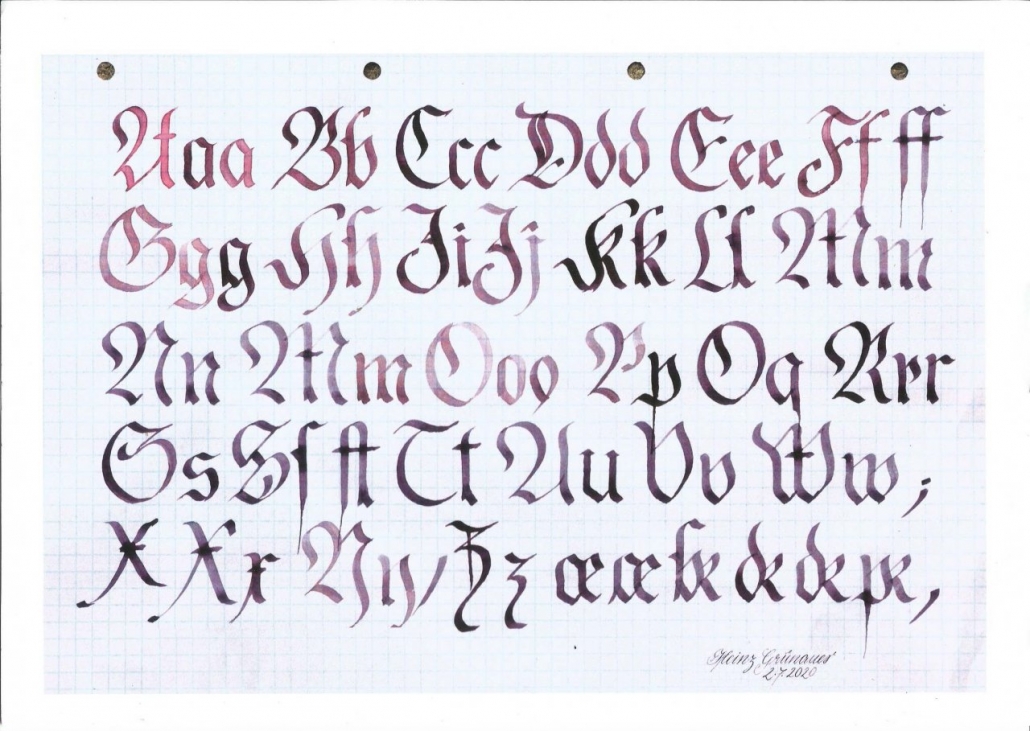 Aaa Bb Ccc Ddd Eee Ff ff
Ggg Hh Ii Jj Kk Ll Mm
Nn Mm Ooo Pp Qq Rrr
Ss Sſ ſt Tt Uu Vv Ww ;
X Xx Yy, Zz
Heinz Grünauer
2.7.2020